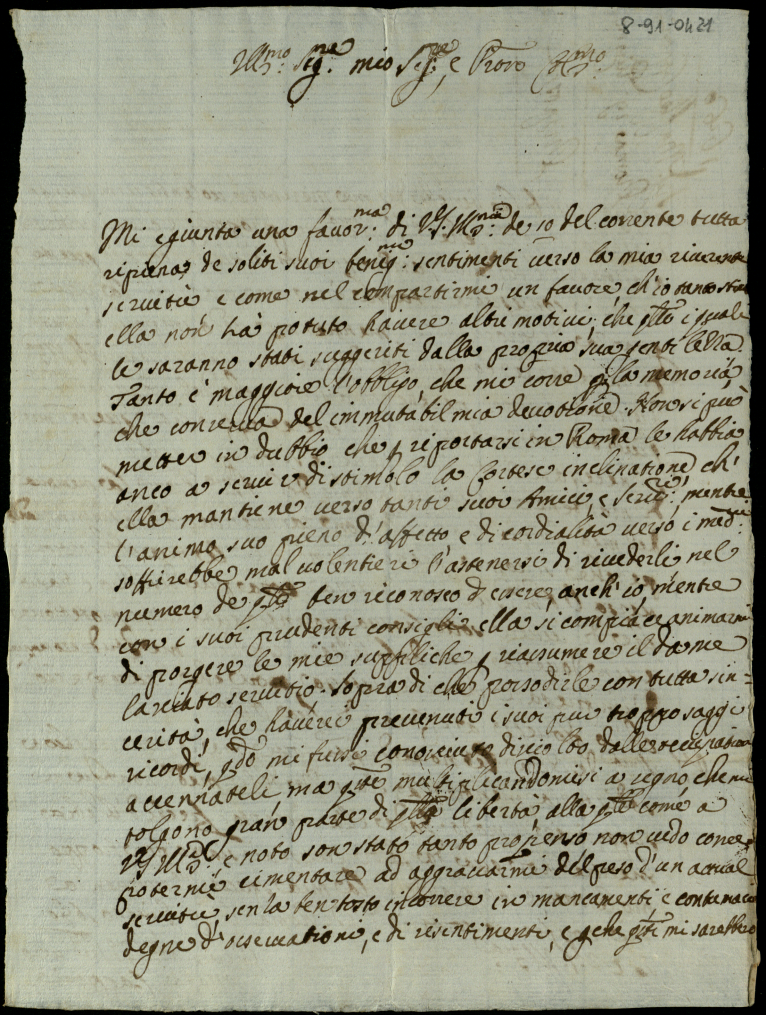 8-91-0421
Ill.mo Sig.re mio Sig.re, e Prone
Mi è giunta una favor.ma di V.S. Ill.ma de 10 del corrente tutta
ripiena de soliti suoi benig.mi sentimenti verso la mia riverente
servitù e come nel compartirmi un favore ch'io tanto
ella non hà potuto havere altri motivi, che q.lli i quali
le saranno stati suggeriti dalla propria sua gentilezza
Tanto è maggiore l'obbligo, che mi corre la memoria
che conserva del immutabil mia devotione. Non si può
metter in dubbio che riportarsi in Roma le habbia
anco a servir di stimolo la Cortese inclinatione ch'
ella mantiene verso tanti suoi Amici, e mentre
l'animo suo pieno d'affetto e di cordialità verso i med.mi
soffrirebbe mal volentieri l'astenersi di rivederli nel
numero de q.li ben riconosco d'essere anch'io, mentre
con i suoi prudenti consigli ella si compiace animarmi
di porgere le mie suppliche riassumere il da me
lasciato servitio. Sopra di che posso dirle con tutta sin=
cerità, che haverei prevenuti i suoi pur troppo saggi
ricordi, q.do mi fussi conosciuto disciolto dalle
accennateli ma q.te multiplicandomisi a segno che mi
tolgono gran parte di q.lla libertà, alla q.le come a
V.S. Ill.ma è noto son stato tanto propenso non vedo come
potermi cimentare ad aggravarmi del peso d'un actual
servitù, senza ben tosto incorrere in mancamenti e contumacie
degne d'osservationi, e di risentimenti, e che q.ti mi sarebbero